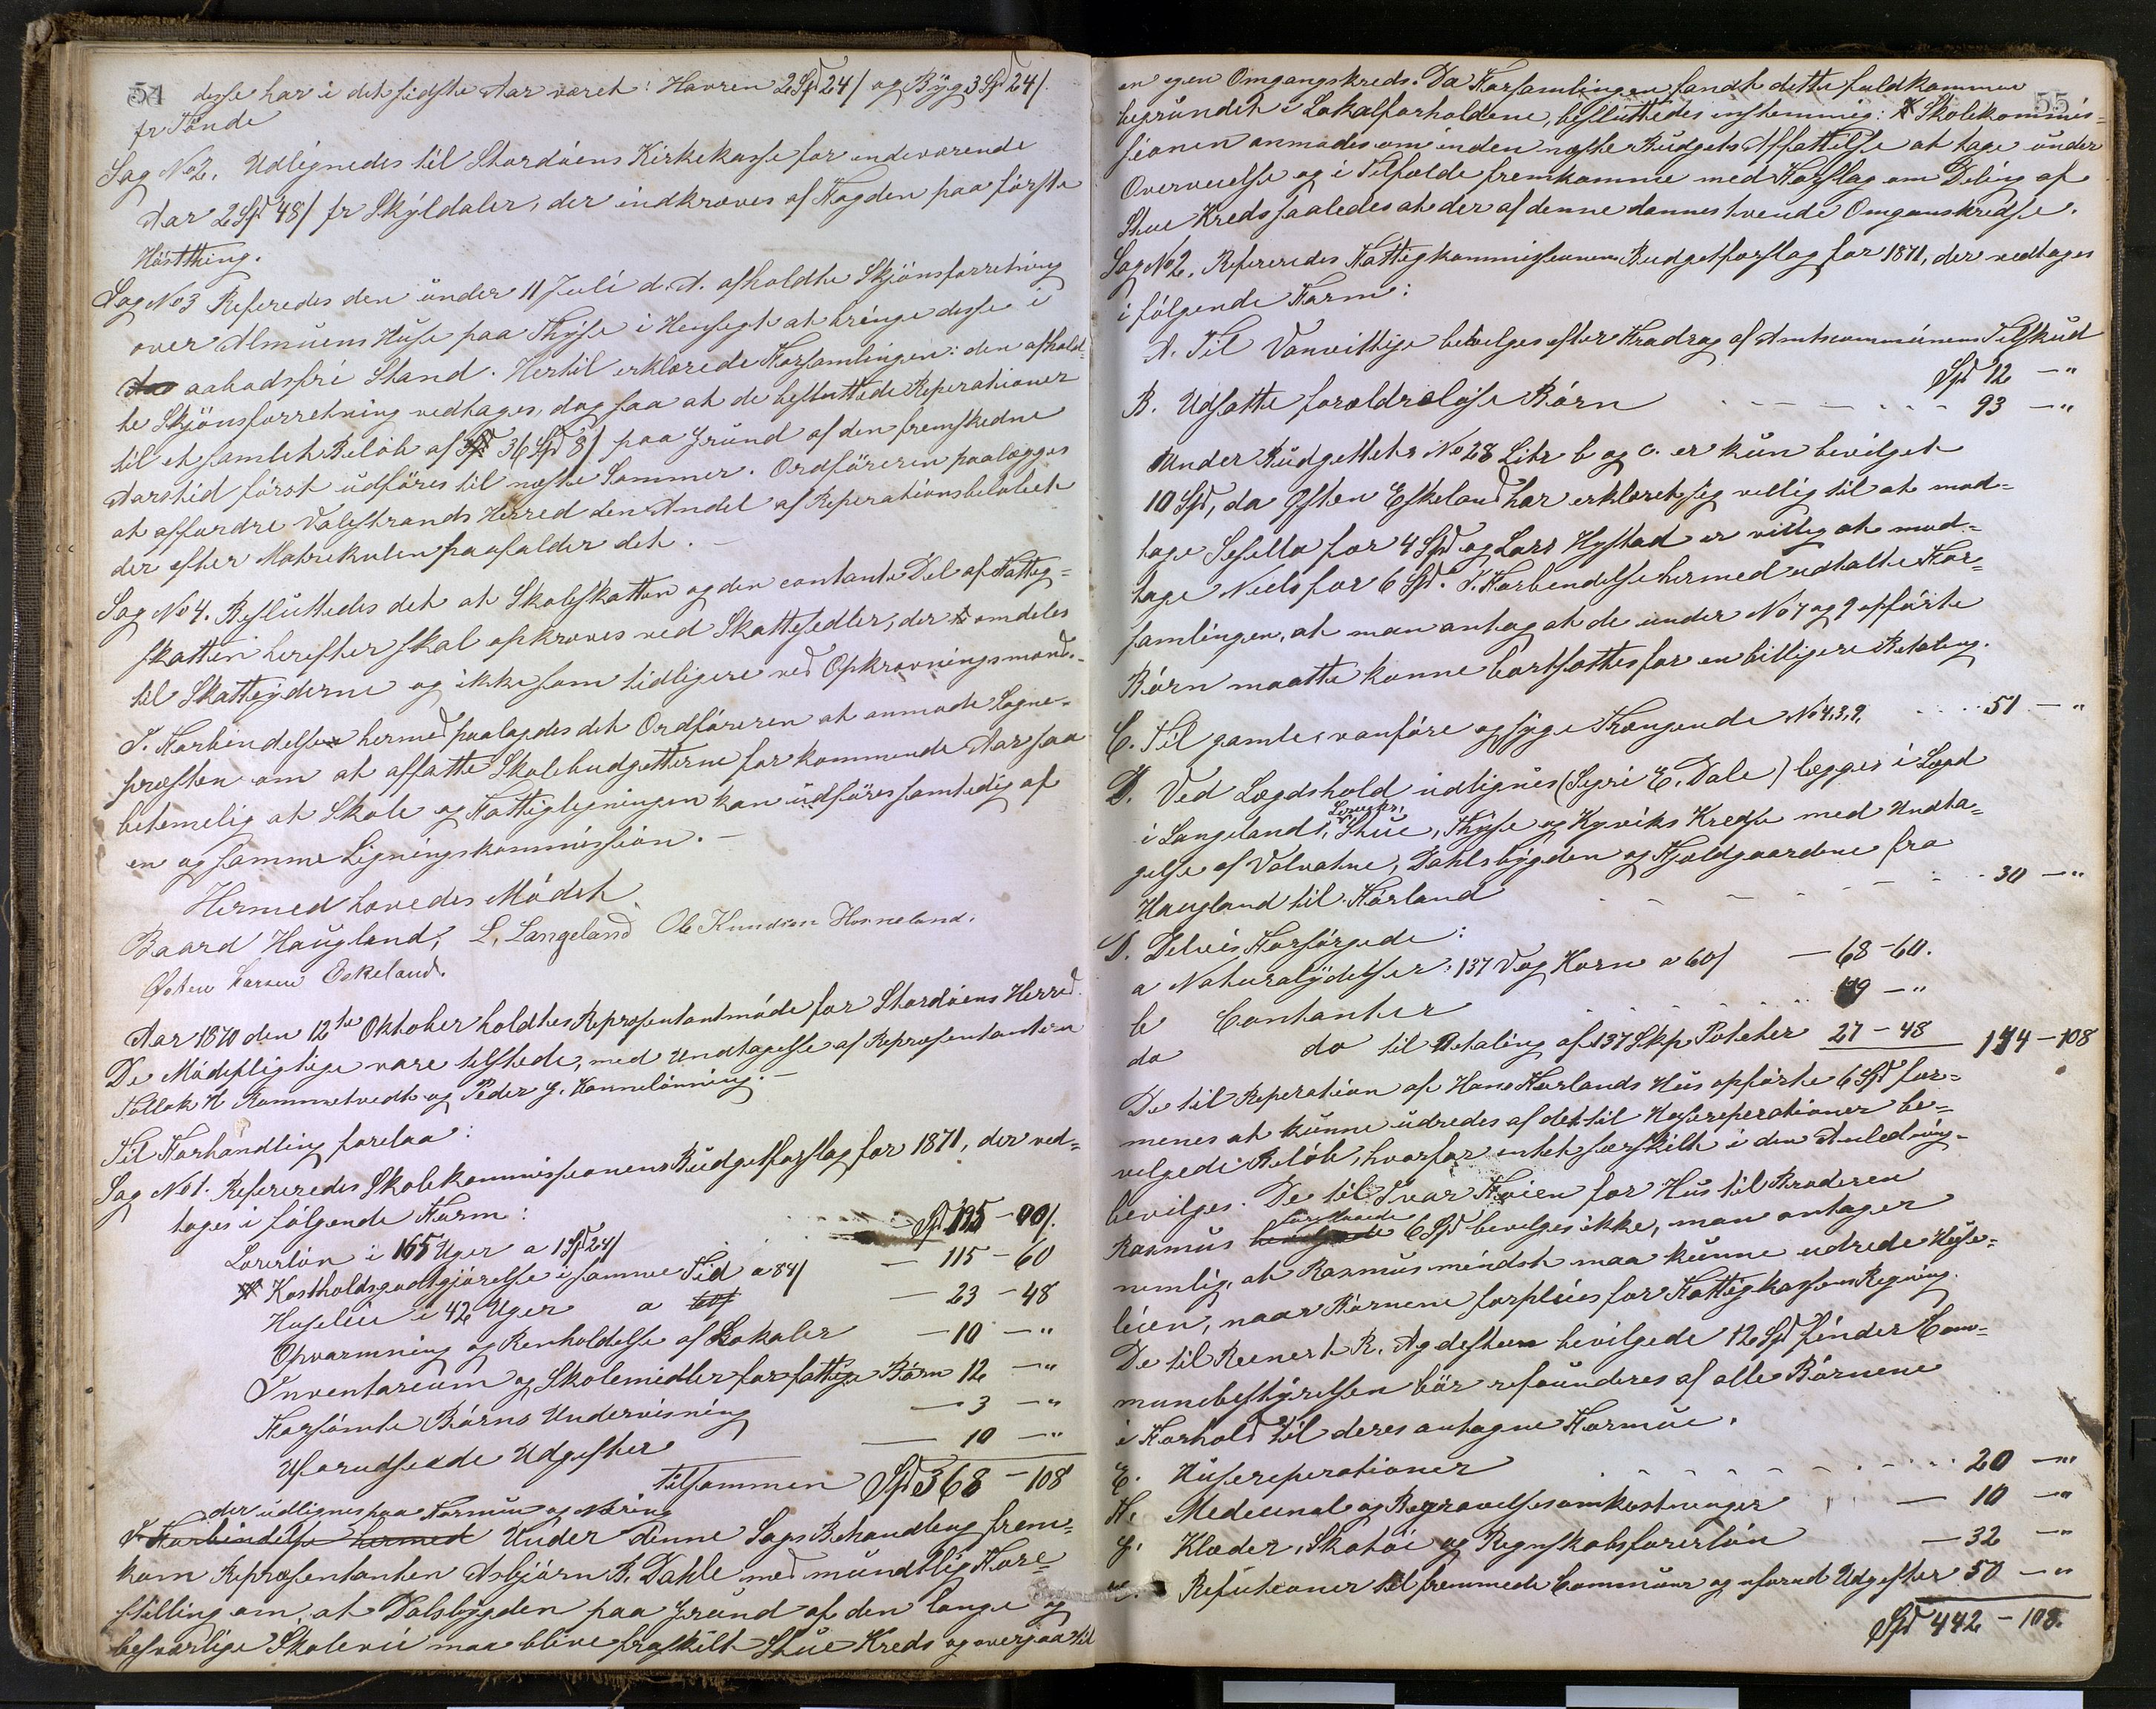 54
desse har i det sidste Aar været: Havren 2 Spd 24/ og Byg 3 Spd 24/.
pr Tönde
Sag No 2. Udlignedes til Stordöens Kirkekasse for indeværende
Aar 2 Spd 48/ pr Skyldaler, der indkræves af Fogden paa förste
Hösthing.
Sag No 3 Referedes den under 11 Juli d. A. afholdte Skjönsforretning
over Almuens Huse paa Thyse i Hensegt at bringe disse i
aabodsfri Stand. Hertil erklærede Forsamlingen: den afhold-
te Skjönsforretning vedtages, dog saa at de besluttede Reperationer
til et samlet Belöb af 36 Spd 8/ paa Grund af den fremskedne
Aarstid först udföres til næste Sommer. Ordföreren paalægges
at affordre Valestrands Herred den Andel af Reperationsbelöbet
der efter Matrikulen paafalder det. —
Sag No 4. Besluttedes det at Skoleskatten og den contante Del af Fattig-
skatten herefter skal opkræves ved Skattesedler, der omdeles
til Skatteyderne og ikke som tidligere ved Opkrævningsmænd.-
I Forbindelse hermed paalagdes det Ordföreren at anmode Sogne-
præsten om at affatte Skolebudgetterne for kommende Aar saa
betemelig at Skole og Fattigligningen kan udföres samtedig af
en og samme Ligningskommission. —
Hermed hævedes Mödet
Baard Haugland, L. Langeland Ole Knudsen Horneland.
Østen Larsen Eskeland.
Aar 1870 den 12te Oktober holdtes Repræsentantmöde for Stordöens Herred.
De Mödepligtige vare tilstede, med Undtagelse af Repræsentanten
Tollak H Rommetvedt og Peder G. Hannelönning. —
Til Forhandling forelaa:
Sag No 1. Refereredes Skolekommissionens Budgetforslag for 1871, der ved-
tages i fölgende Form:
Lærerlön i 165 Uger a 1 Spd 24/ — Spd 195 - 00/.
Kostholdsgodtgjörelse i samme Tid a 84/ — 115 - 60
Huseleie i 42 Uger a — 23 - 48
Opvarmning og Renholdelse af Lokaler — 10 - "
Inventarium og Skolemidler for fattige Börn 12 - "
Forsömte Börns Undervisning — 3 - "
Uforudseede Udgifter — 10 - "
tilsammen Spd 368 - 108
der udlignes paa Formue og Næring
I Forbindelse hermed Under denne Sags Behandling frem-
kom Repræsentanten Asbjörn B. Dahle med mundtlig Fore-
stilling om, at Dalsbygden paa Grund af den lange og
besværlige Skolevei maa blive fraskilt Stue Kreds og overgaa til
55
en egen Omgangskreds. Da Forsamlingen fandt dette fuldkommen
begrundet i Lokalforholdene, besluttedes enstemmig: Skolekommis-
sionen anmodes om inden næste Budgets Affattelse at tage under
Overveielse og i Tilfælde fremkomme med Forslag om Deling af
Stue Kreds saaledes at der af denne dannes tvende Omganskredse.
Sag No 2. Refereredes Fattigkommissionens Budgetforslag for 1871, der vedtages
i fölgende Form:
A. Til Vanvittige bevilges efter Fradrag af Amtscommunens Tilskud
Spd 12 - "
B. Udsatte forældrelöse Börn — 93 - "
Under Budgettets No 28 Litr b og c. er kun bevilget
10 Spd, da Østen Eskeland har erklæret sig villig til at mod-
tage Sesella for 4 Spd og Lars Hystad er villig at mod-
tage Niels for 6 Spd. I Forbindelse hermed udtalte For-
samlingen, at man antog at de under No 7 og 9 opförte
Börn maatte kunne bortsættes for en billigere Betaling.
C. Til gamle, vanföre og syge Trængende No 4, 3, 9. . . . . 51 - "
D. Ved Lægdshold udlignes (Segri E. Dale) lægges i Lægd
i Langelands, Stue, Thyse og Kyviks Kredse med Undta-
gelse af Valvatne, Dahlsbygden og Fjeldgaardene fra
Haugland til Förland — 30 - "
D. Delvis Forsörgede:
a Naturalydelser: 137 Vog Korn a 60/ — 68 - 60.
b Contanter 79 - "
do do til Betaling af 137 Skp Poteter 27 - 48 174 - 108
De til Reperation af Hans Förlands Hus opförte 6 Spd for-
menes at kunne udredes af det til Husereperationer be-
velgede Belöb, hvorfor intet særskilt i den Anledning
bevilges. De til Ivar Hoien for Hus til Broderen
foreslaaede
Rasmus bevilgede 6 Spd bevelges ikke, man antager
nemlig, at Rasmus mindst maa kunne udrede Huse-
leien, naar Börnene forpleies for Fattigkassens Regning.
De til Reenert R. Agdesteen bevilgede 12 Spd finder Com-
munebestyrelsen bör refunderes af alle Börnene
i Forhold til deres antagne Formue.
E. Husereperationer — 20 - "
F. Medecinal og Begravelsesomkostninger — 10 - "
G. Klæder, Skotöi og Regnskabsförerlön — 32 - "
Refusioner til fremmede Communer og uforud Udgifter 50 - "
Spd 442 - 108.